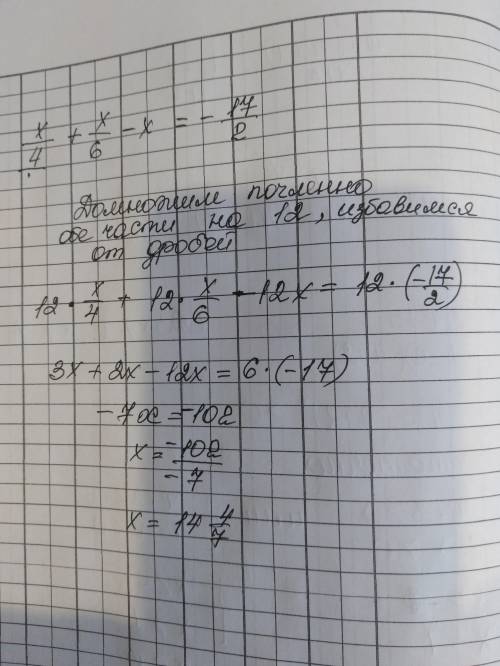 x/4 + x/6 - x = - 17/2
Домножим почленно
обе части на 12, избавимся
от дробей
12 · x/4 + 12 · x/6 - 12x = 12 · (-17/2)
3x + 2x - 12x = 6 · (-17)
-7x = -102
x = -102/-7
x = 14 4/7